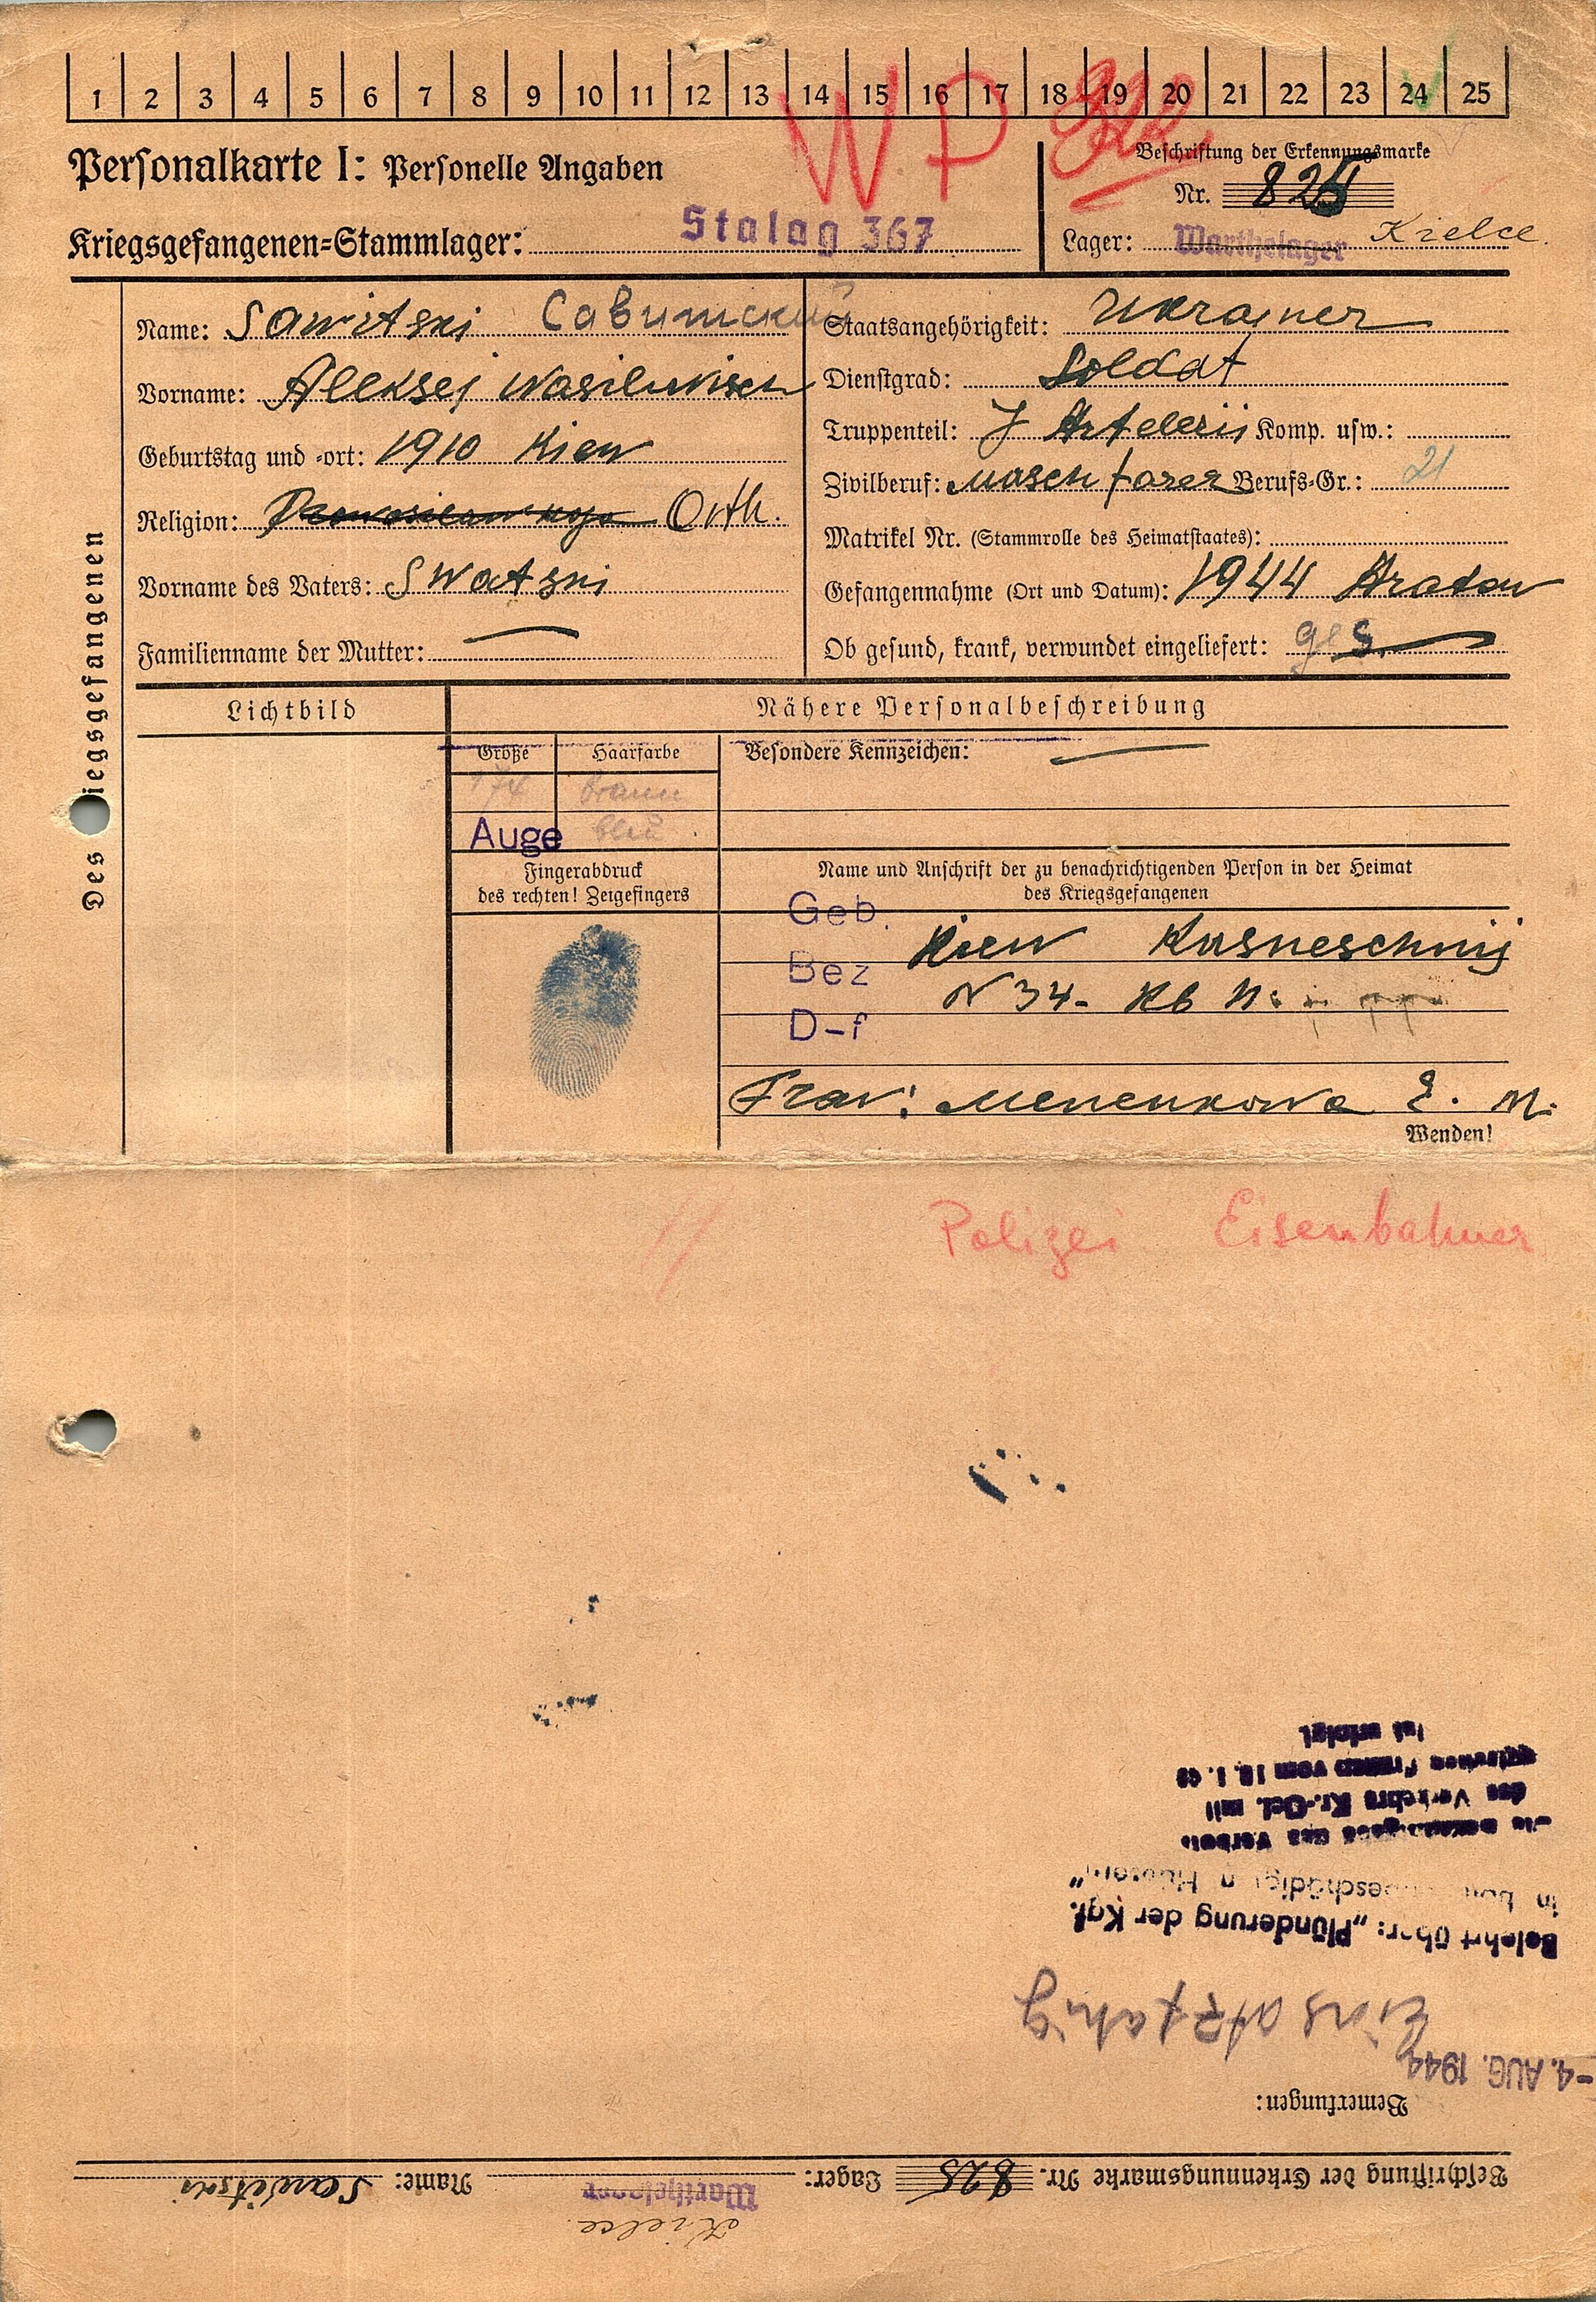 1 2 3 4 5 6 7 8 9 10 11 12 13 14 15 16 17 18 19 20 21 22 23 24 25
WP
Personalkarte I: Personelle Angaben
Beschriftung der Erkennungsmarke
Nr. 825
Kriegsgefangenen-Stammlager: Stalag 367
Lager: Warthelager Kielce.
Des Kriegsgefangenen
Name: Sawitski Савитский
Vorname: Aleksej Wasilewisch
Geburtstag und -ort: 1910 Kiew
Religion: Orth.
Vorname des Vaters: Swatski
Familienname der Mutter: —
Staatsangehörigkeit: Ukrainer
Dienstgrad: Soldat
Truppenteil: J Artelerii Komp. usw.:
Zivilberuf: Masch Berufs-Gr.: 21
Matrikel Nr. (Stammrolle des Heimatstaates):
Gefangennahme (Ort und Datum): 1944
Ob gesund, krank, verwundet eingeliefert: ges.
Lichtbild
Nähere Personalbeschreibung
Größe Haarfarbe
174 braun
Auge blau
Besondere Kennzeichen: —
Fingerabdruck
des rechten! Zeigefingers
Name und Anschrift der zu benachrichtigenden Person in der Heimat
des Kriegsgefangenen
Geb.
Kiew Kusneschnij
Bez
N 34- Kb N:
D-f
Frau: Menenkowa E. M.
Wenden!
Polizei Eisenbahner
Beschriftung der Erkennungsmarke Nr. 825 Lager: Warthelager Name: Sawitski
Kielce.
Bemerkungen:
-4. AUG. 1944
Einsatzfähig
Belehrt über: „Plünderung der Kgf.
in beschädigten Häusern“
das Verbot
des Verkehrs Kr.-Gef. mit
deutschen Frauen vom 10.1.
ist erfolgt